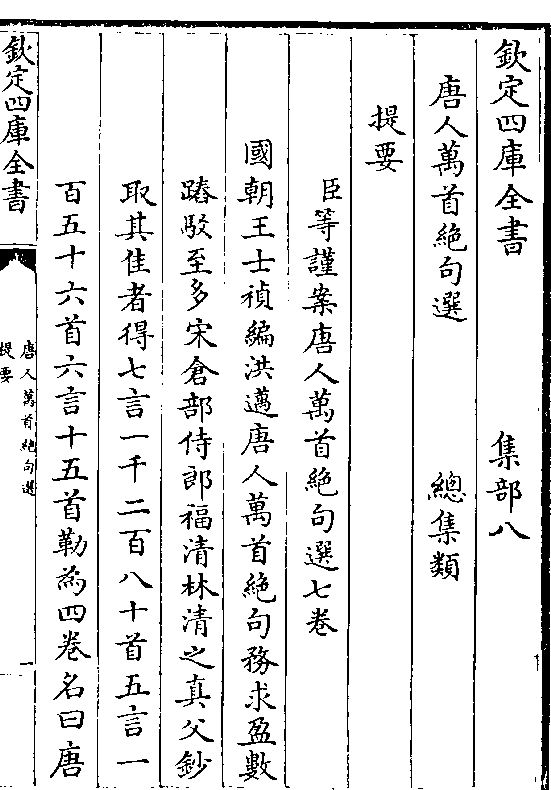 欽定四庫全書　集部八
唐人萬首絕句選　總集類
提要
臣等謹案唐人萬首絕句選七卷
國朝王士禎編洪邁唐人萬首絕句務求盈數
踳駁至多宋倉部侍郎福清林清之真父鈔
取其佳者得七言一千二百八十首五言一
百五十六首六言十五首勒為四卷名曰唐
欽定四庫全書
唐人萬首絕句選
提要
一